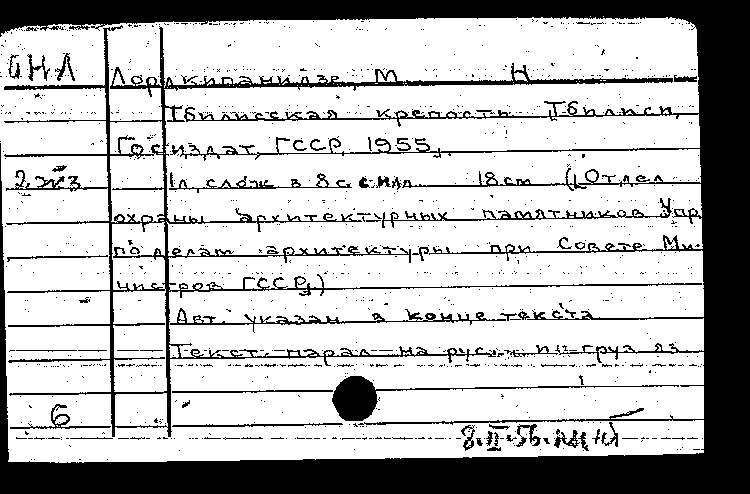 ОНЛ
Лордкипанидзе, М Н
Тбилисская крепость Тбилиси,
Госиздат, ГССР, 1955.
2 экз 1л, слож в 8 с. с илл 18 cm (Отдел
охраны архитектурных памятников Упр
по делам архитектуры при Совете Ми-
нистров ГССР.)
Авт. указан в конце текста
Текст парал на рус. и груз яз
6
8.II.56.